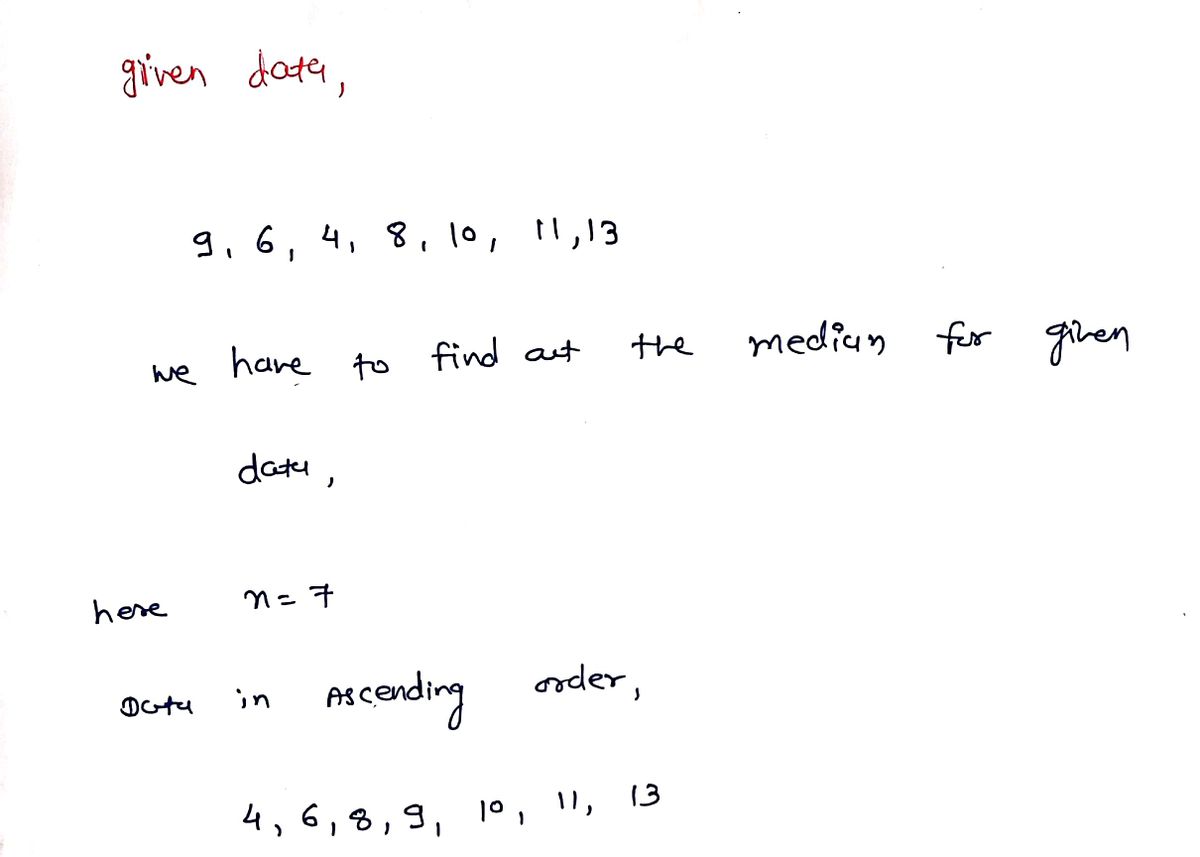 given data,
9, 6, 4, 8, 10, 11, 13
we have to find out the median for given
data,
here n = 7
Data in Ascending order,
4, 6, 8, 9, 10, 11, 13